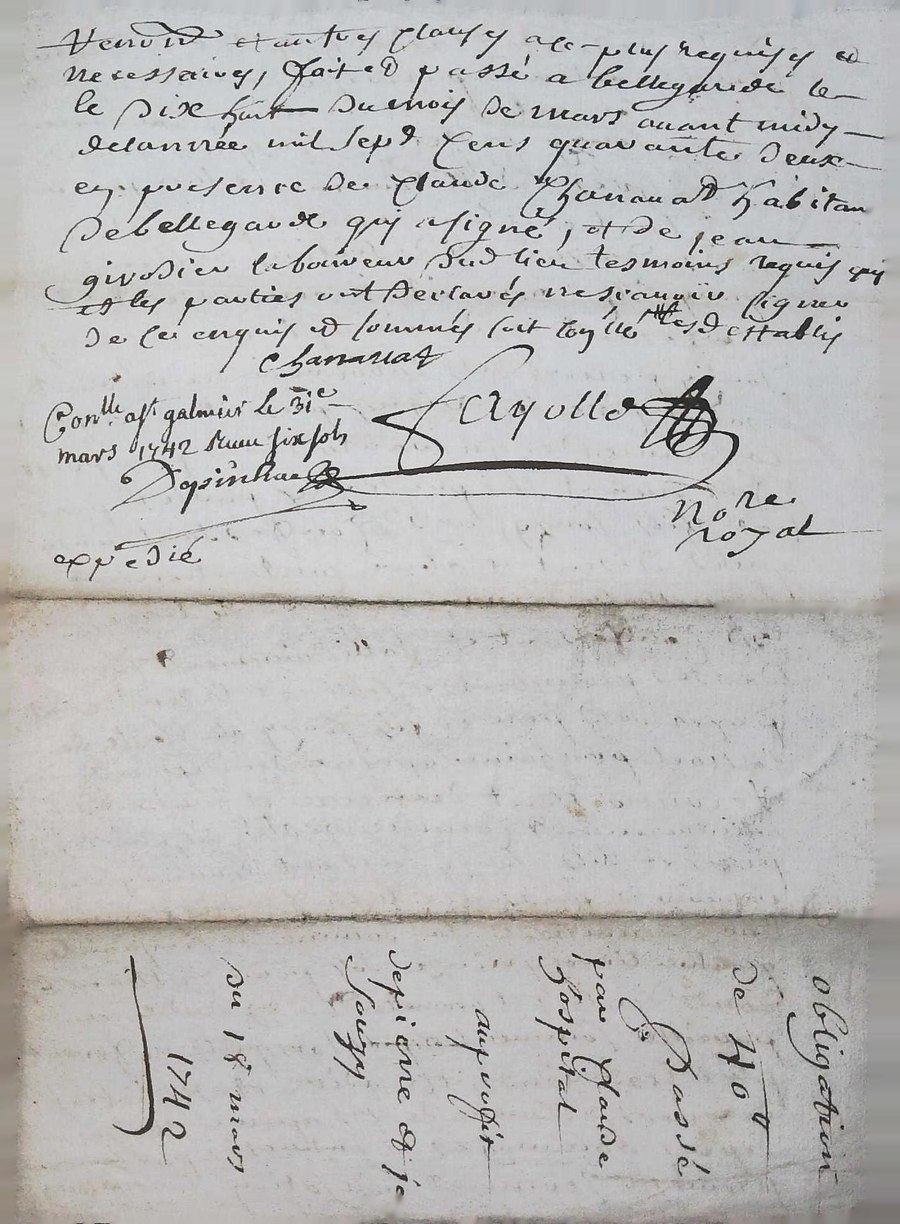 et autres clauses a ce plus requises et
necessaires, fait et passé a bellegarde le
le dix huit du mois de mars avant midy
de lannée mil sept cens quarante deux
en presence de claude Chanauat habitan
de bellegarde qui a signé, et de jean
girodier laboureur dud lieu tesmoins requis qui
et les parties ont declarés ne scauoir signer
de ce enquis et sommés soit et establis
Chanauat
Conlle a st galmier le 31e
mars 1742 Receu six sols
fayolle
nore
royal
expedié
obligation
de 40 tt
Passé
par Claude
hospital
au proffit
de pierre et je
souzy
du 18 mars
1742